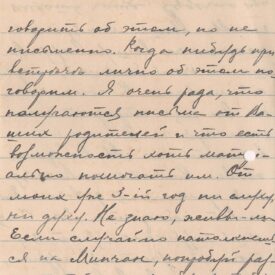 говорить об этом, но не
письменно. Когда нибудь при
встрече лично об этом по-
говорим. Я очень рада, что
получаются письма от Ва-
ших родителей и что есть
возможность хоть мате-
ально помогать им. От
моих уже 3-ий год ни слуху,
ни духу. Не знаю, живы-ли.
Если случайно натолкнеш
ся на Минчан, попробуй раз